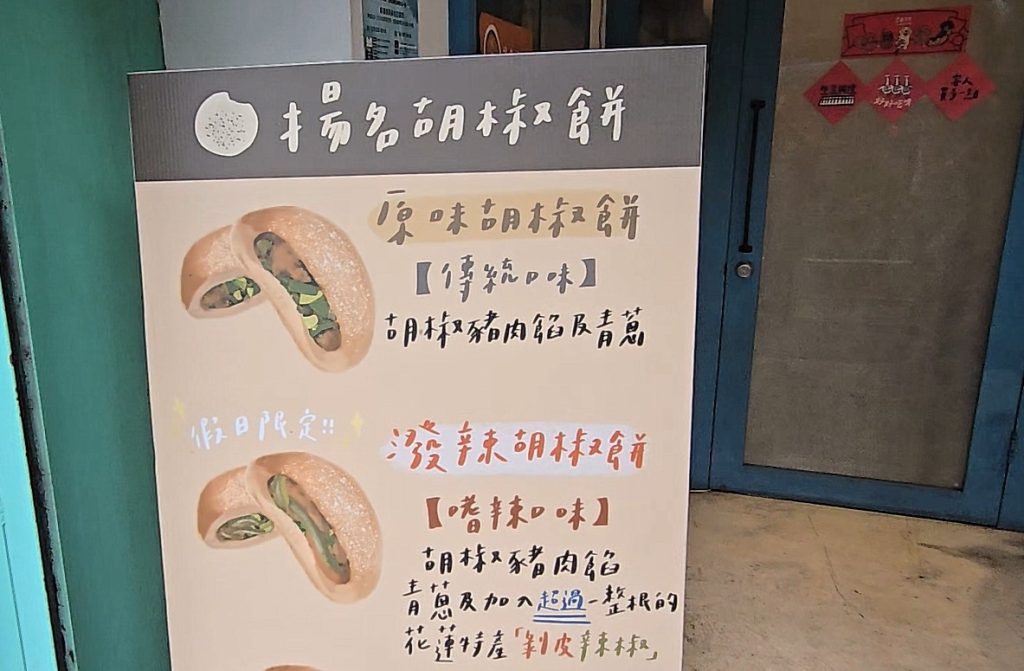 揚名胡椒餅
原味胡椒餅
【傳統口味】
胡椒豬肉餡及青蔥
假日限定!!
潑辣胡椒餅
【嗜辣口味】
胡椒豬肉餡
青蔥及加入超過一整根的
花蓮特產「剝皮辣椒」